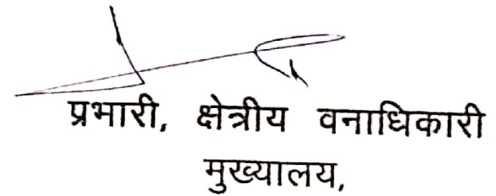 प्रभारी, क्षेत्रीय वनाधिकारी
मुख्यालय,